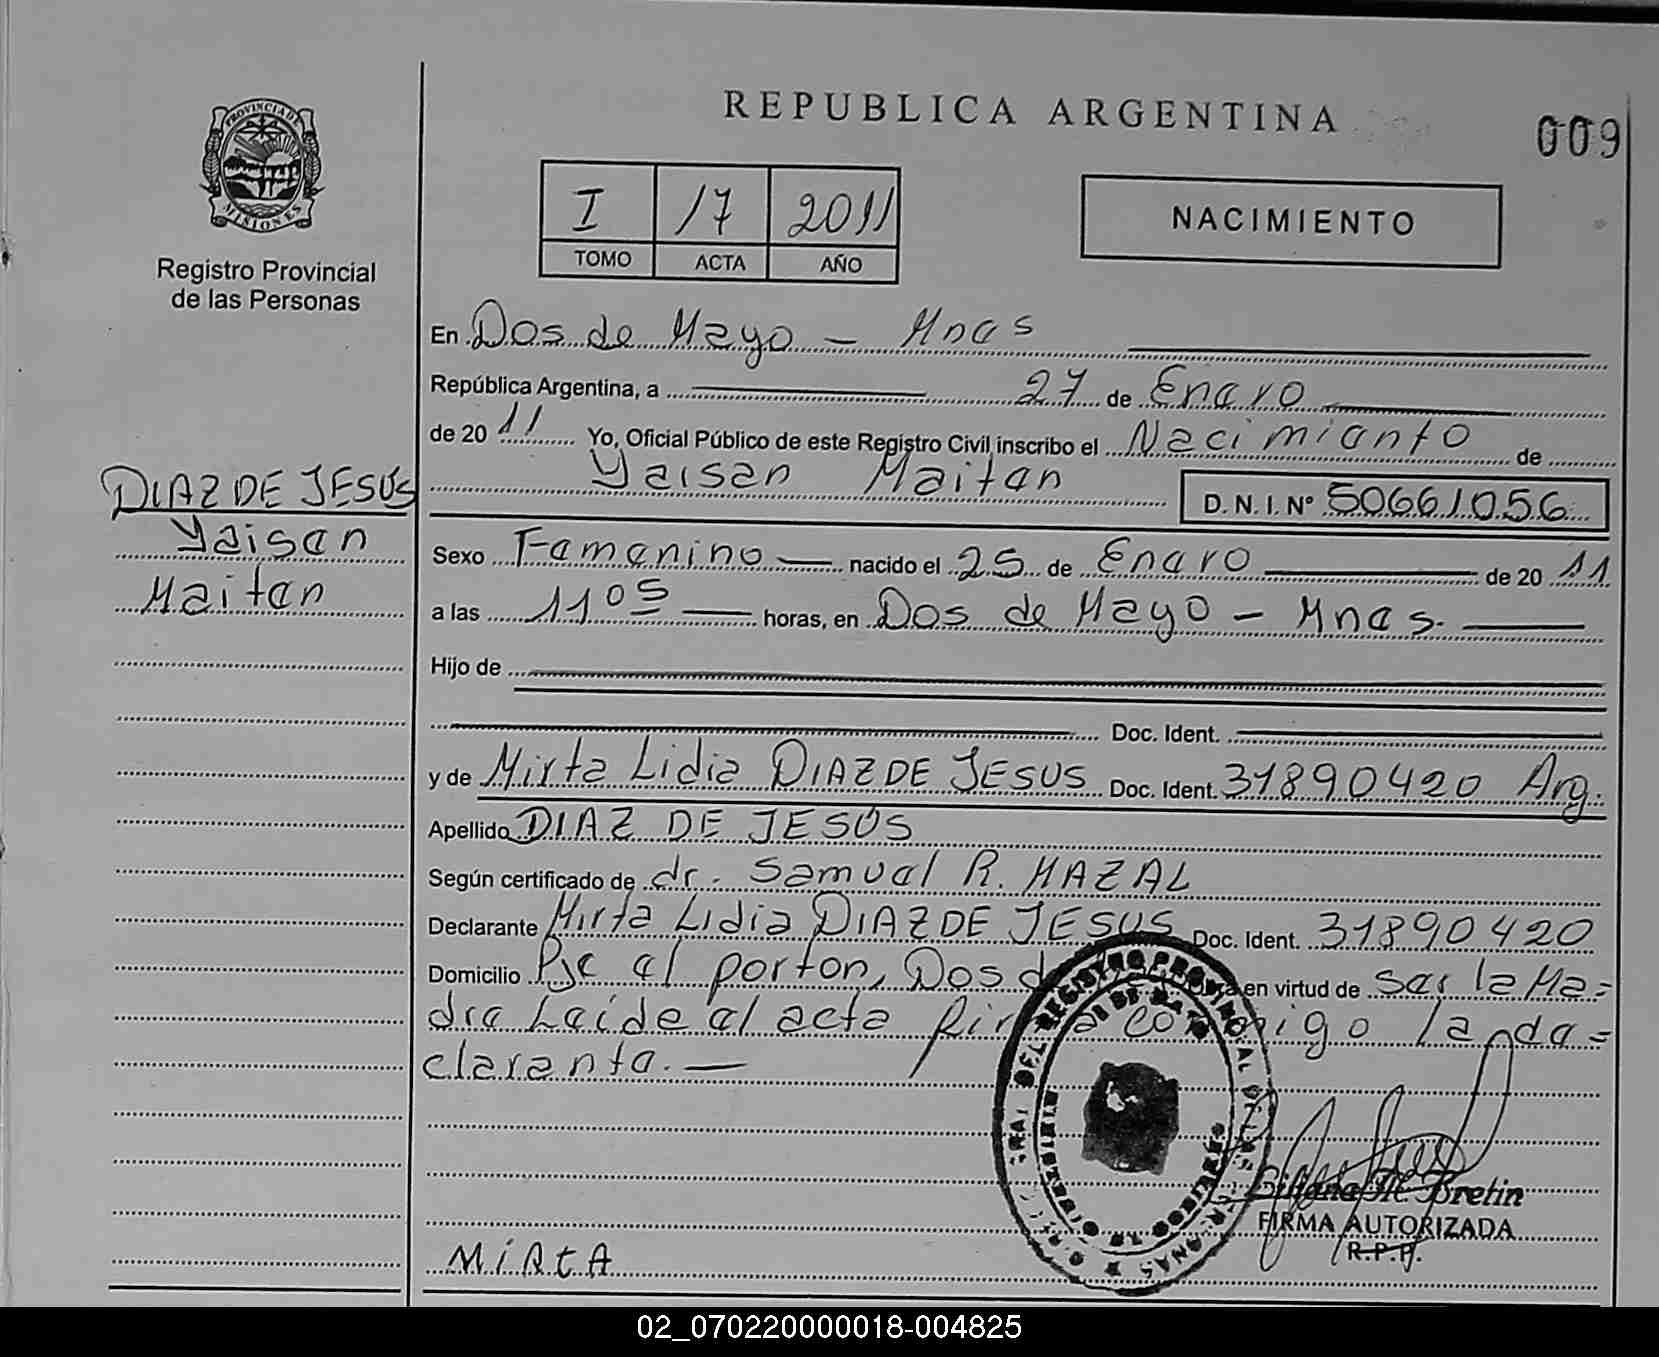 REPUBLICA ARGENTINA
009
PROVINCIA DE
MISIONES
Registro Provincial
de las Personas
I 17 2011
TOMO ACTA AÑO
NACIMIENTO
En Dos de Mayo - Mnas
República Argentina, a 27 de Enero
de 20 11 Yo, Oficial Público de este Registro Civil inscribo el Nacimiento de
Yaisen Maiten D. N. I. Nº 50661056
DIAZ DE JESÚS
Yaisen
Maiten
Sexo Femenino nacido el 25 de Enero de 20 11
a las 11 05 horas, en Dos de Mayo - Mnas.
Hijo de
Doc. Ident.
y de Mirta Lidia DIAZ DE JESUS Doc. Ident. 31890420 Arg.
Apellido DIAZ DE JESÚS
Según certificado de dr. Samuel R. MAZAL
Declarante Mirta Lidia DIAZ DE JESUS Doc. Ident. 31890420
Domicilio Pje el porton, Dos d en virtud de ser la Ma=
dre Leíde el acta fir igo la de=
clarante.
MiRtA
Bretin
FIRMA AUTORIZADA
R.P.P.
02_070220000018-004825